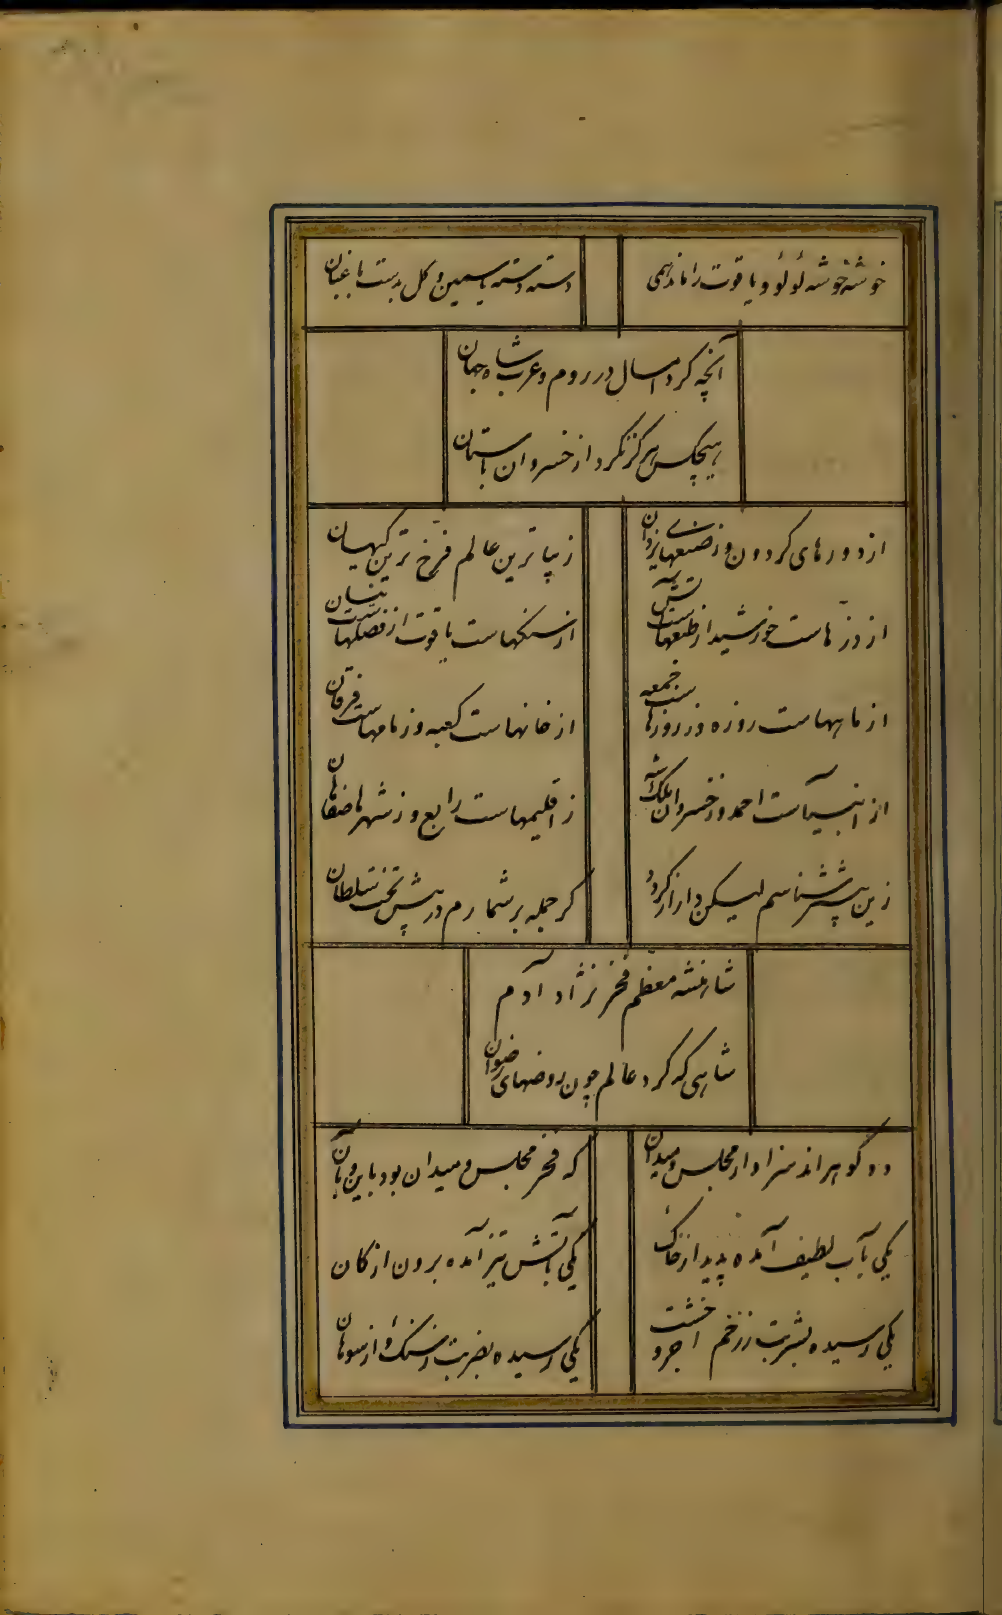 خوشه خوشه لولو و یاقوت را ماند همی
دسته دسته یاسمین و کل بدست باغبان
آنچه کرد امسال در روم و عرب شاه جهان
هیچکس هرکز نکرد از خسروان باستان
از دورهای کردون وز صنعهای یزدان
زیباترین عالم فرخ ترین کیهان
از است خورشید از طبعهاست آتش
از سنکهاست یاقوت از فصلهاست نیسان
از ماههاست روزه وز روزهاست جمعه
از خانهاست کعبه وز نامهاست فرقان
از انبیاست احمد وز خسروان ملکشه
ز اقلیمهاست رابع وز شهرها صفاهان
زین بیشتر شناسم لیکن دراز کردد
کر جمله برشمارم در پیش تخت سلطان
شاهنشه معظم فخر نژاد آدم
شاهی که کرد عالم چون روضهای رضوان
دو کوهراند سزاوار مجلس و میدان
که فخر مجلس و میدان بود باین و بآن
یکی بآب لطیف آمده پدید از خاک
یکی بآتش تیز آمده برون از کان
یکی رسیده بشربت ز زخم خشت
یکی رسیده بضربت ز سنک و از سوهان